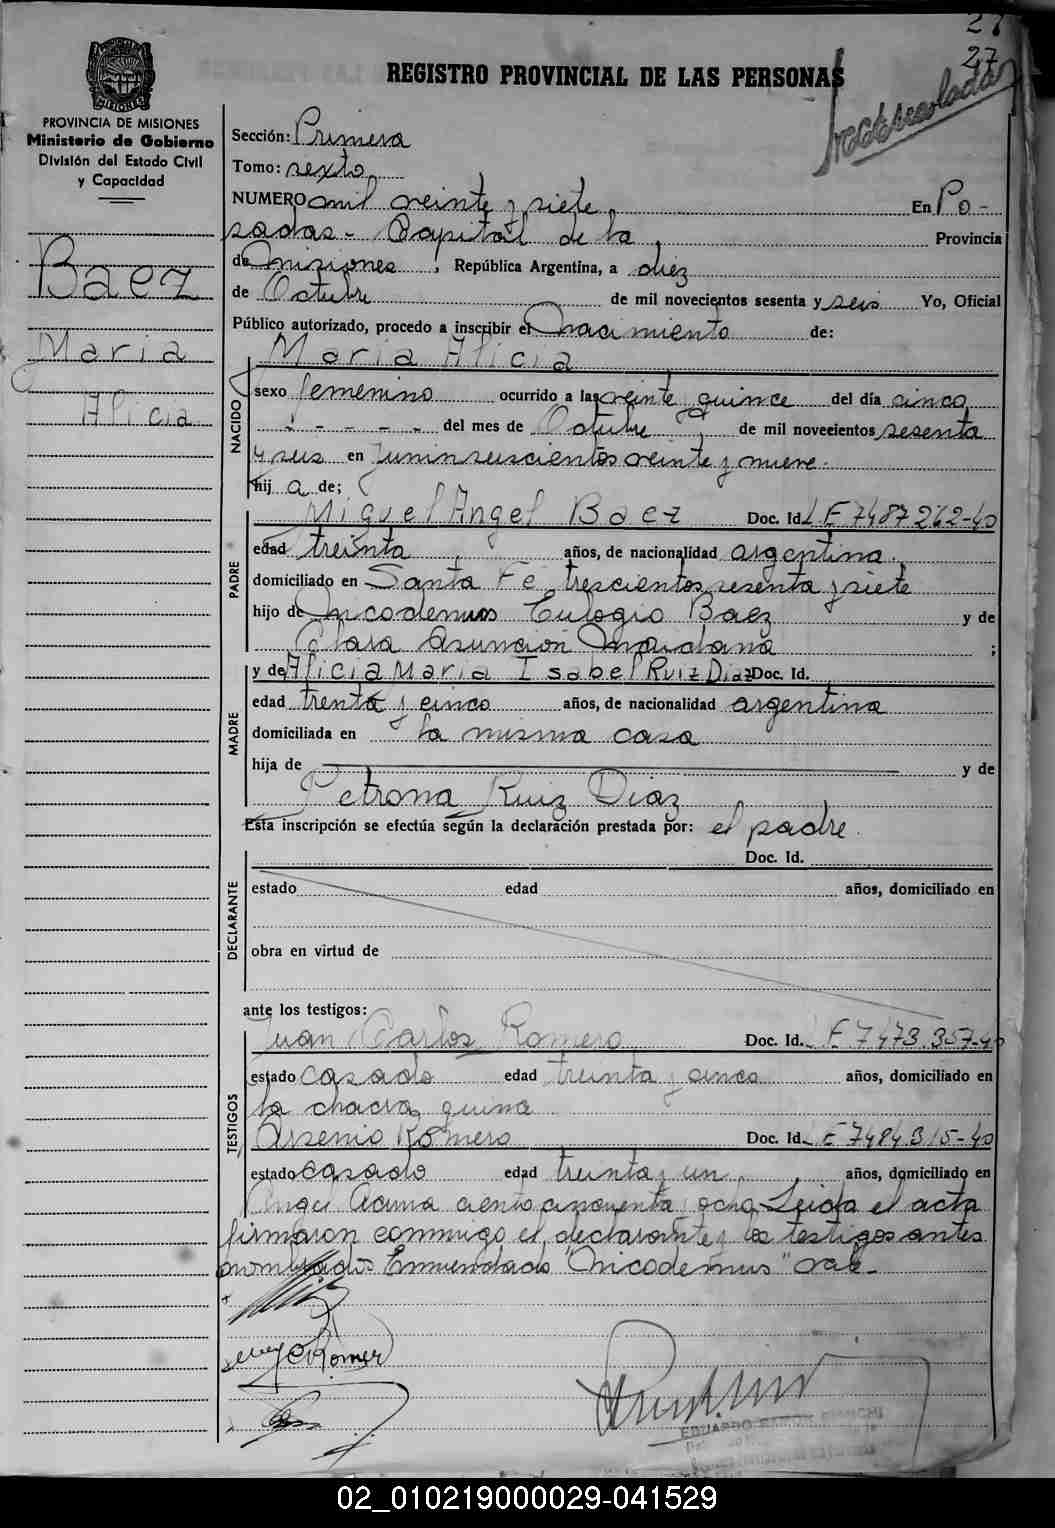 27
27
REGISTRO PROVINCIAL DE LAS PERSONAS
PROVINCIA DE MISIONES
Ministerio de Gobierno
División del Estado Civil
y Capacidad
Baez
Maria
Alicia
Sección: Primera
Tomo: sexto
NUMERO mil veinte y siete En Po-
sadas - Capital de la Provincia
de Misiones, República Argentina, a diez
de Octubre de mil novecientos sesenta y seis Yo, Oficial
Público autorizado, procedo a inscribir el Nacimiento de:
NACIDO
Maria Alicia
sexo femenino ocurrido a las veinte y quince del día cinco
- - - - - del mes de Octubre de mil novecientos sesenta
y seis en Junin seiscientos veinte y nueve.
hij a de;
PADRE
Miguel Angel Baez Doc. Id. L E 7487262-40
edad treinta años, de nacionalidad argentina.
domiciliado en Santa Fé trescientos sesenta y siete
hijo de Nicodemus Eulogio Baez y de
Clara Asunción Maidana ;
MADRE
y de Alicia Maria Isabel Ruiz Diaz Doc. Id.
edad treinta y cinco años, de nacionalidad argentina
domiciliada en la misma casa
hija de y de
Petrona Ruiz Diaz
Esta inscripción se efectúa según la declaración prestada por: el padre.
DECLARANTE
Doc. Id.
estado edad años, domiciliado en
obra en virtud de
ante los testigos:
TESTIGOS
Juan Carlos Romero Doc. Id. L E 7473.357-40
estado casado edad treinta y cinco años, domiciliado en
la chacra quina
Arsenio Romero Doc. Id. L E 7484315-40
estado casado edad treinta y un años, domiciliado en
acuna ciento cincuenta y ocho Leida el acta
firmaron conmigo el declarante y los testigos antes
nombrados Enmendado "Nicodemus" vale-
JCRomero
EDUARDO RAMON BIANCHI
02_010219000029-041529